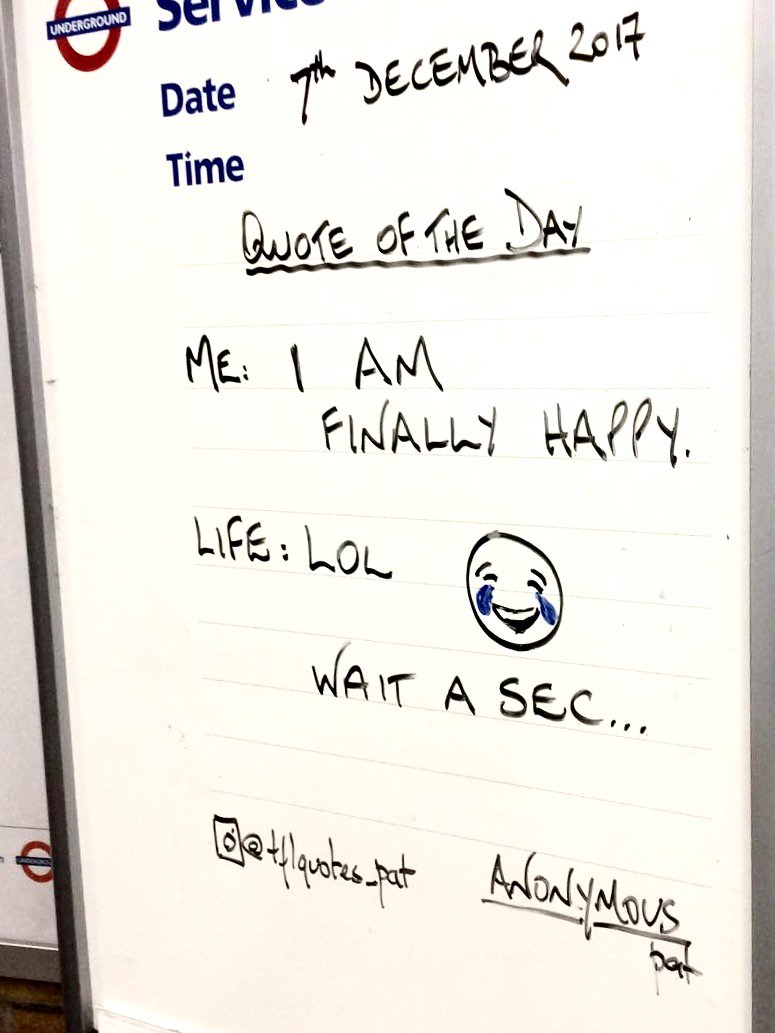 UNDERGROUND
Service
Date 7th DECEMBER 2017
Time
QUOTE OF THE DAY
ME: I AM
FINALLY HAPPY.
LIFE: LOL
WAIT A SEC...
@tflquotes_pat
ANONYMOUS
pat
UNDERGROUND